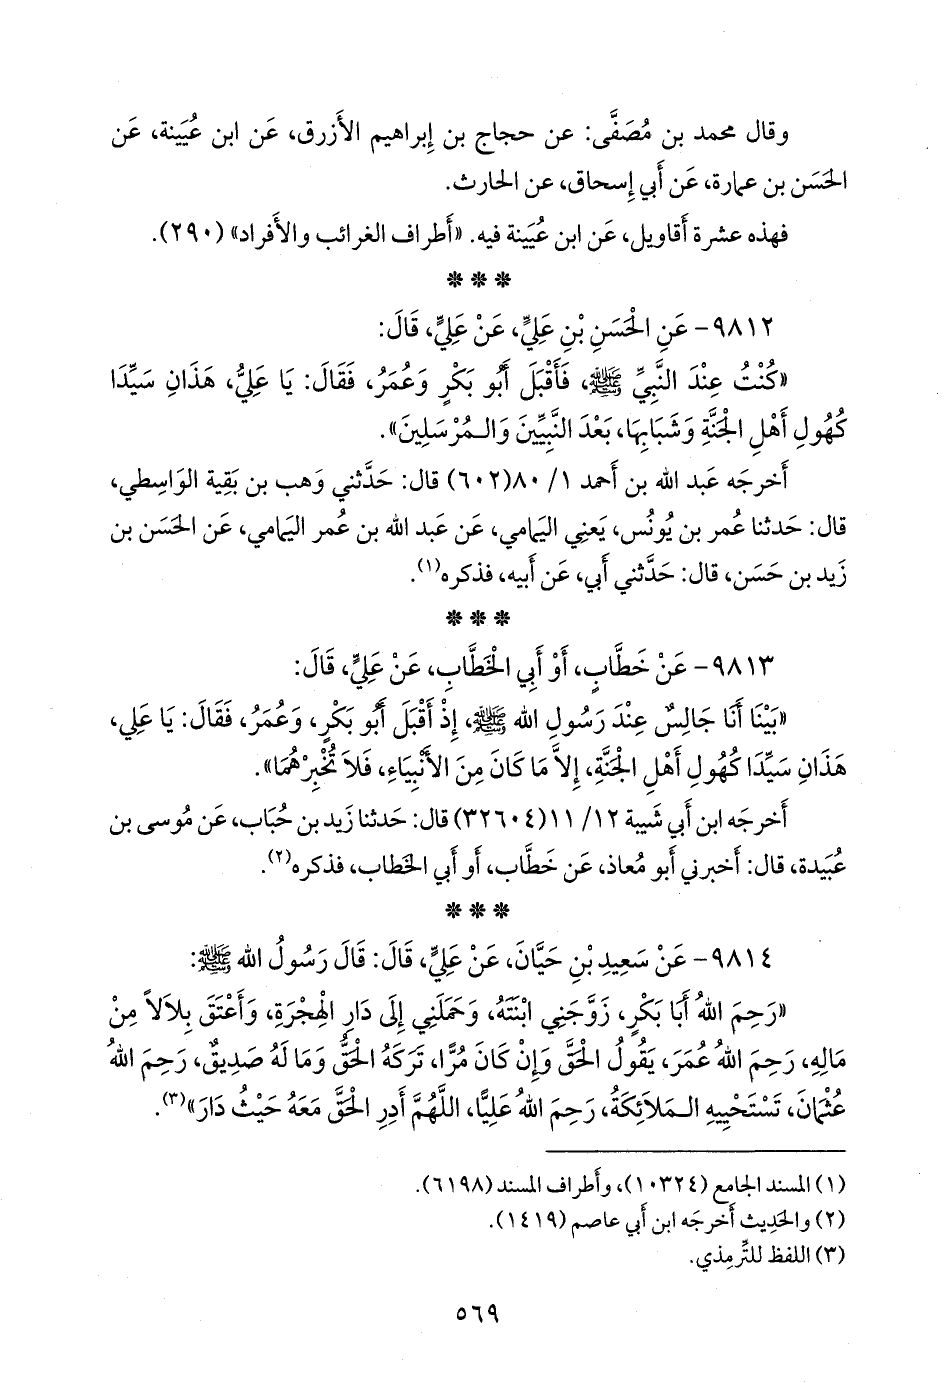 وقال محمد بن مُصَفَّى: عن حجاج بن إِبراهيم الأَزرق، عَن ابن عُيَينة، عَن
الحَسَن بن عمارة، عَن أَبي إِسحاق، عن الحارث.
فهذه عشرة أَقاويل، عَن ابن عُيَينة فيه. «أَطراف الغرائب والأَفراد» (٢٩٠).
***
٩٨١٢- عَنِ الْحَسَنِ بْنِ عَلِيٍّ، عَنْ عَلِيٍّ، قَالَ:
«كُنْتُ عِنْدَ النَّبِيِّ ﷺ، فَأَقْبَلَ أَبُو بَكْرٍ وَعُمَرُ، فَقَالَ: يَا عَلِيُّ، هَذَانِ سَيِّدَا
كُهُولِ أَهْلِ الْجَنَّةِ وَشَبَابِهَا، بَعْدَ النَّبِيِّينَ وَالـمُرْسَلِينَ».
أَخرجَه عَبد الله بن أَحمد ١/ ٨٠(٦٠٢) قال: حَدَّثني وَهب بن بَقِية الوَاسِطي،
قال: حَدثنا عُمر بن يُونُس، يَعنِي اليَمامي، عَن عَبد الله بن عُمر اليَمامي، عَن الحَسن بن
زَيد بن حَسَن، قال: حَدَّثني أَبي، عَن أَبيه، فذكره(١).
***
٩٨١٣- عَنْ خَطَّابٍ، أَوْ أَبِي الْخَطَّابِ، عَنْ عَلِيٍّ، قَالَ:
«بَيْنَا أَنَا جَالِسٌ عِنْدَ رَسُولِ الله ﷺ، إِذْ أَقْبَلَ أَبُو بَكْرٍ، وَعُمَرُ، فَقَالَ: يَا عَلِي،
هَذَانِ سَيِّدَا كُهُولِ أَهْلِ الْجَنَّةِ، إِلاَّ مَا كَانَ مِنَ الأَنْبِيَاءِ، فَلاَ تُخْبِرْهُمَا».
أَخرجَه ابن أَبي شَيبة ١٢/ ١١(٣٢٦٠٤) قال: حَدثنا زَيد بن حُبَاب، عَن مُوسى بن
عُبَيدة، قال: أَخبرني أَبو مُعاذ، عَن خَطَّاب، أَو أَبي الخَطاب، فذكره(٢).
***
٩٨١٤- عَنْ سَعِيدِ بْنِ حَيَّانَ، عَنْ عَلِيٍّ، قَالَ: قَالَ رَسُولُ الله ﷺ:
«رَحِمَ اللهُ أَبَا بَكْرٍ، زَوَّجَنِي ابْنَتَهُ، وَحَمَلَنِي إِلَى دَارِ الْهِجْرَةِ، وَأَعْتَقَ بِلاَلاً مِنْ
مَالِهِ، رَحِمَ اللهُ عُمَرَ، يَقُولُ الْحَقَّ وَإِنْ كَانَ مُرًّا، تَرَكَهُ الْحَقُّ وَمَا لَهُ صَدِيقٌ، رَحِمَ اللهُ
عُثْمَانَ، تَسْتَحْيِيهِ الـمَلاَئِكَةُ، رَحِمَ اللهُ عَلِيًّا، اللَّهُمَّ أَدِرِ الْحَقَّ مَعَهُ حَيْثُ دَارَ»(٣).
(١) المسند الجامع (١٠٣٢٤)، وأَطراف المسند (٦١٩٨).
(٢) والحَدِيث أَخرجَه ابن أَبي عاصم (١٤١٩).
(٣) اللفظ للتِّرمِذي.
٥٦٩